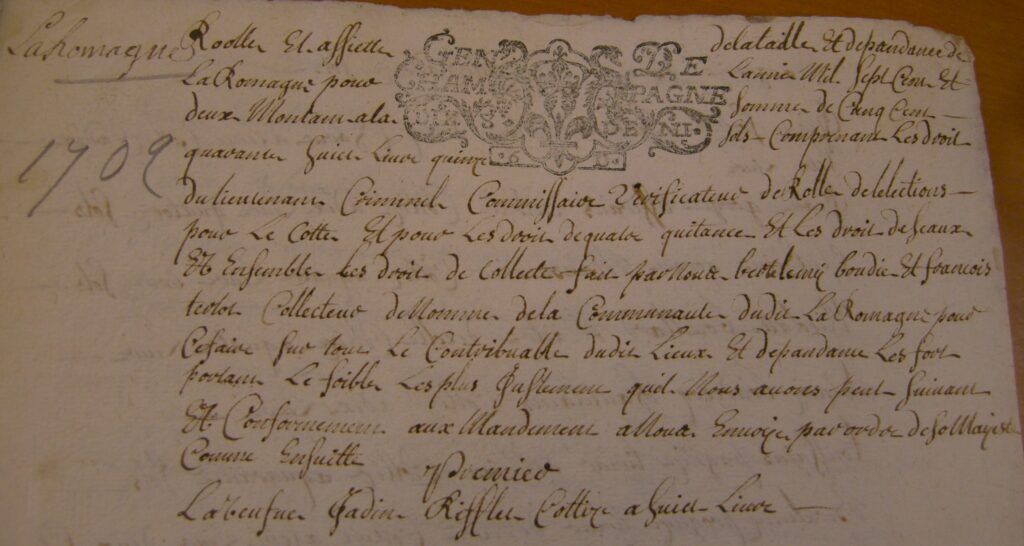 LaRomagne
1709
Roolle Et assiette delataille Et dependance de
La Romagne pour Lannee Mil Sept Cent Et
deux Montant ala somme de Cinq Cent
quarante huict Livre quinze sols Comprenant Les droit
GEN DE
CHAMPAGNE
DE NI
du lieutenant Criminel Commissaire Verificateur de Rolle delelections
pour Le Cotte Et pour Les droit de quatre quitance Et Les droit de seaux
Et Ensemble Les droit de Collecte fait par Nous bertelemy boudie Et francois
Collecteur deNomme dela Communaute dudit LaRomagne pour
Cefaire sur tout Le Contribuable dudit Lieux Et dependance Les fort
portant Le foible Les plus Justement quil Nous avons peut suivant
Et Conformement aux Mandement a Nous Envoye par ordre de sa Majeste
Comme Ensuitte
Premier
La veufve Jadin Rifflet Cottize a huict Livre